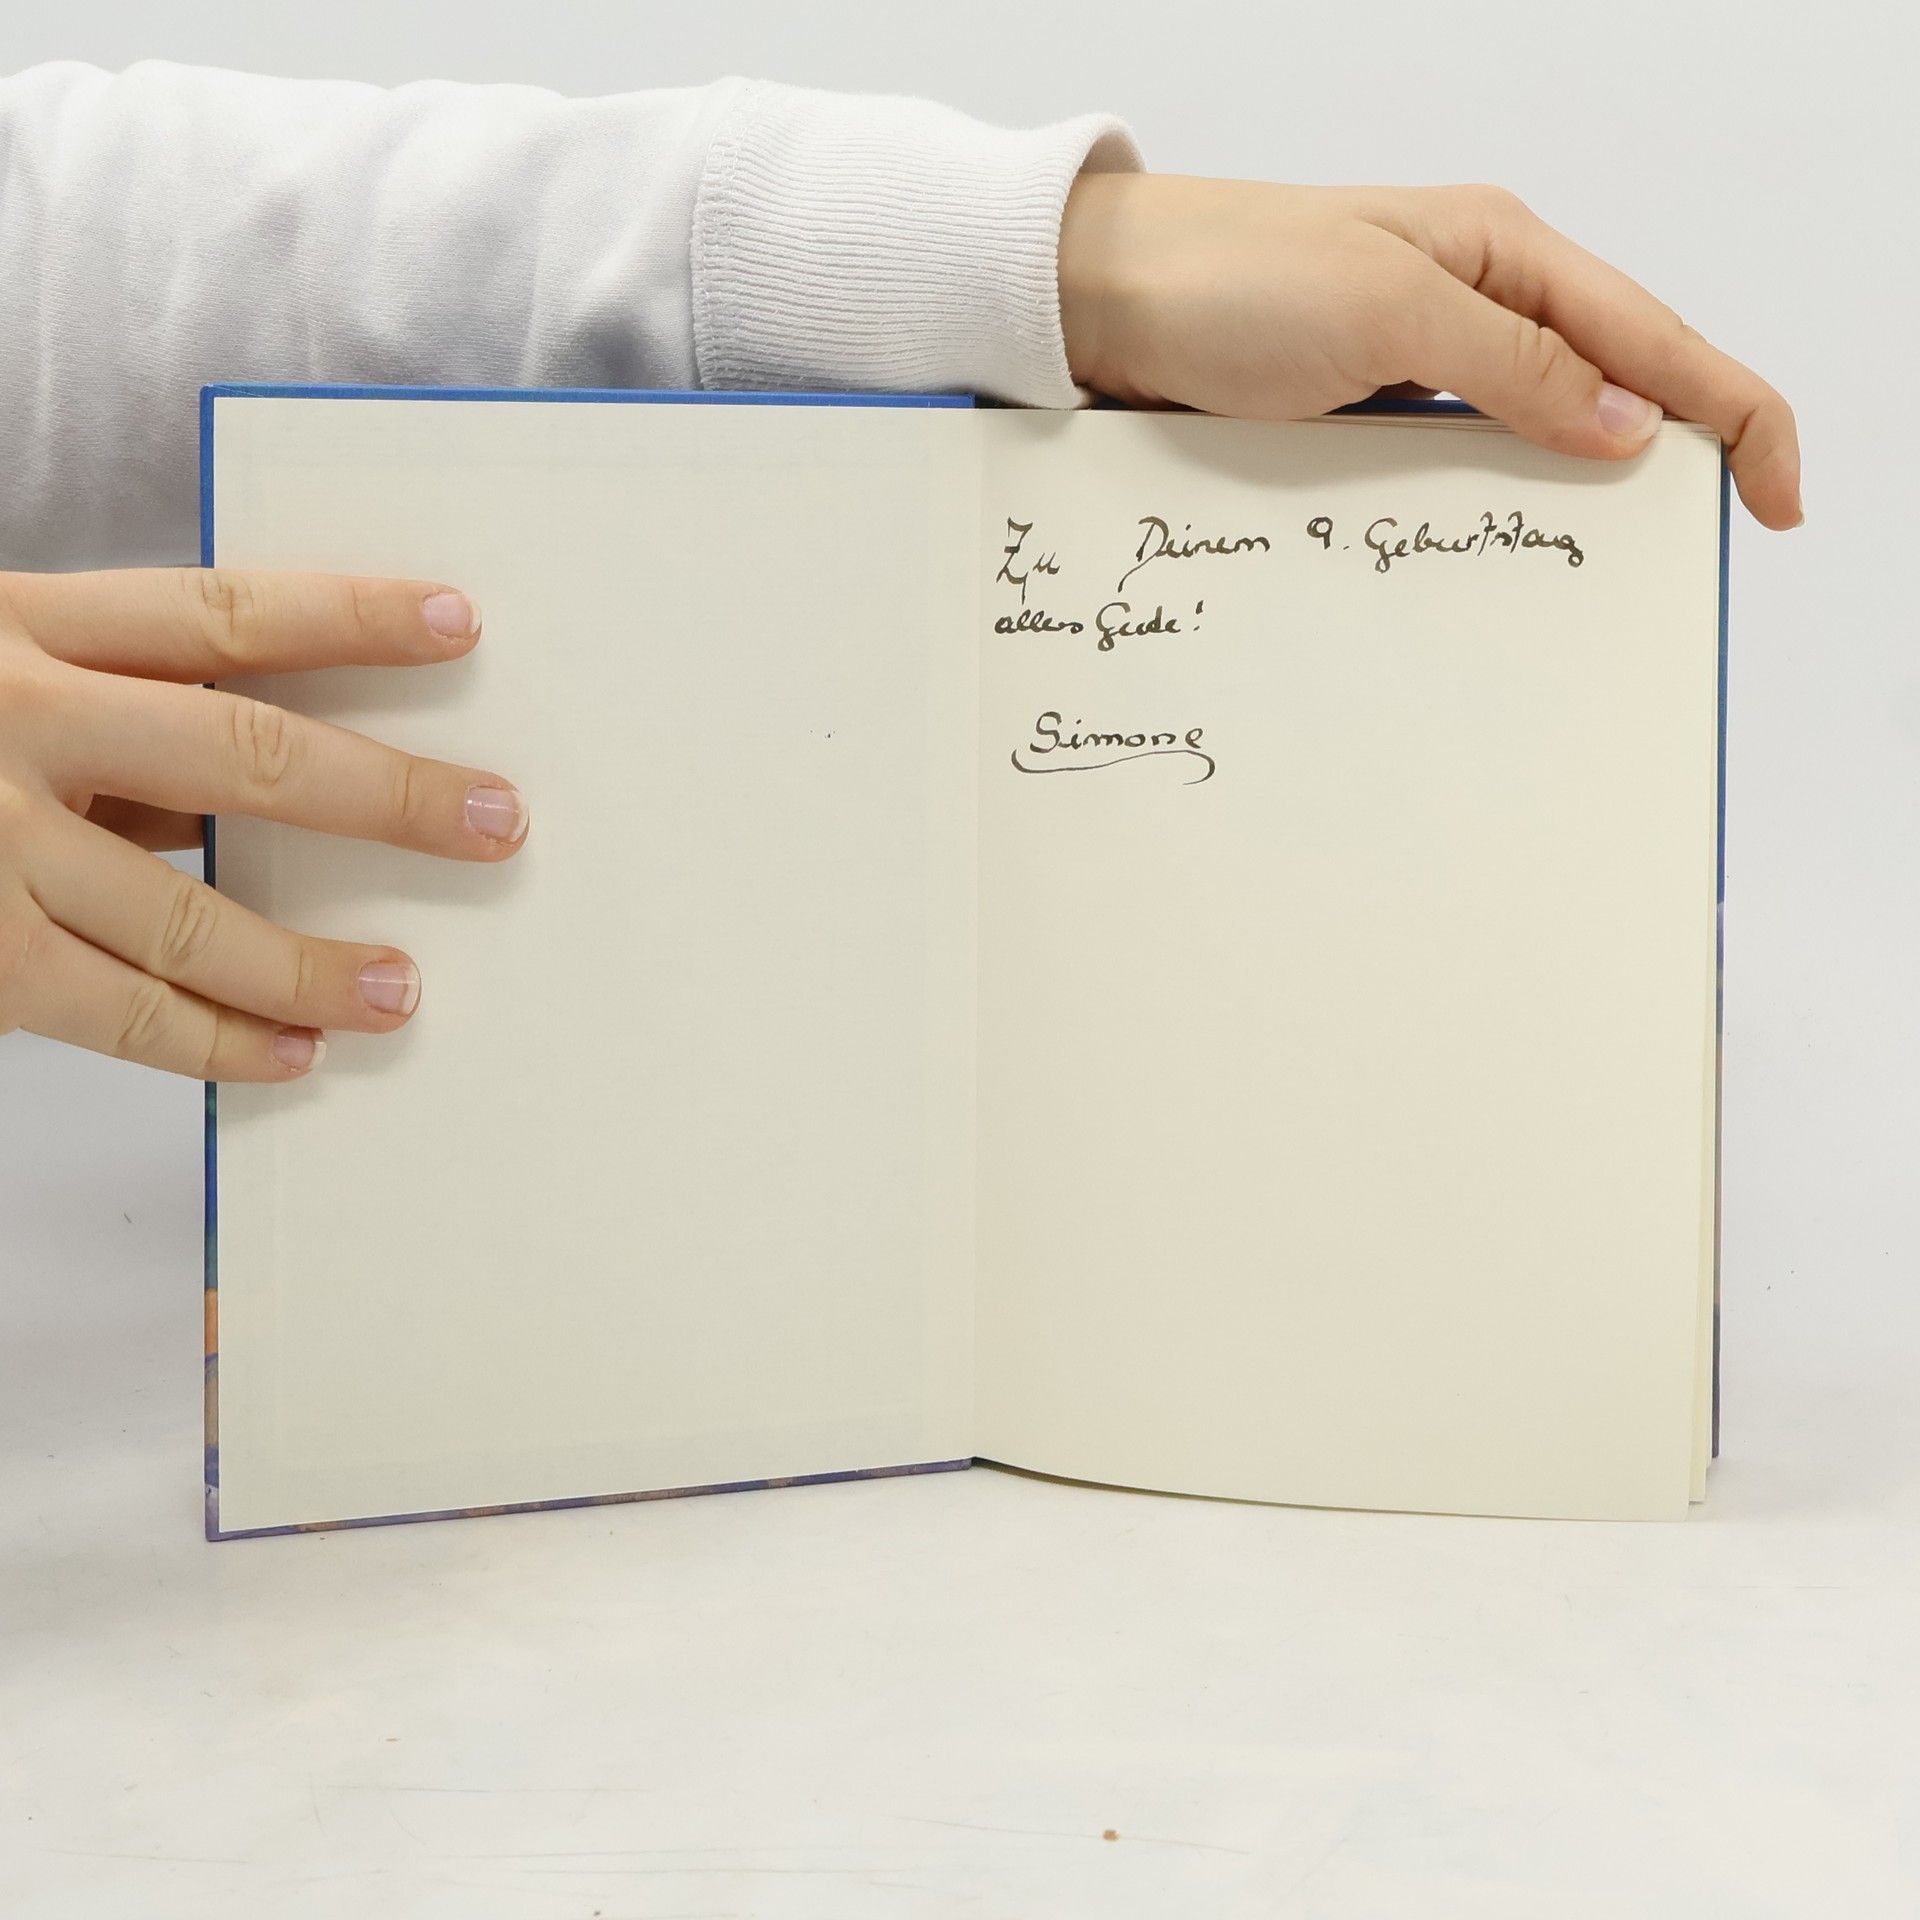 Zu Deinem 9. Geburtstag
alles Gute!
Simone